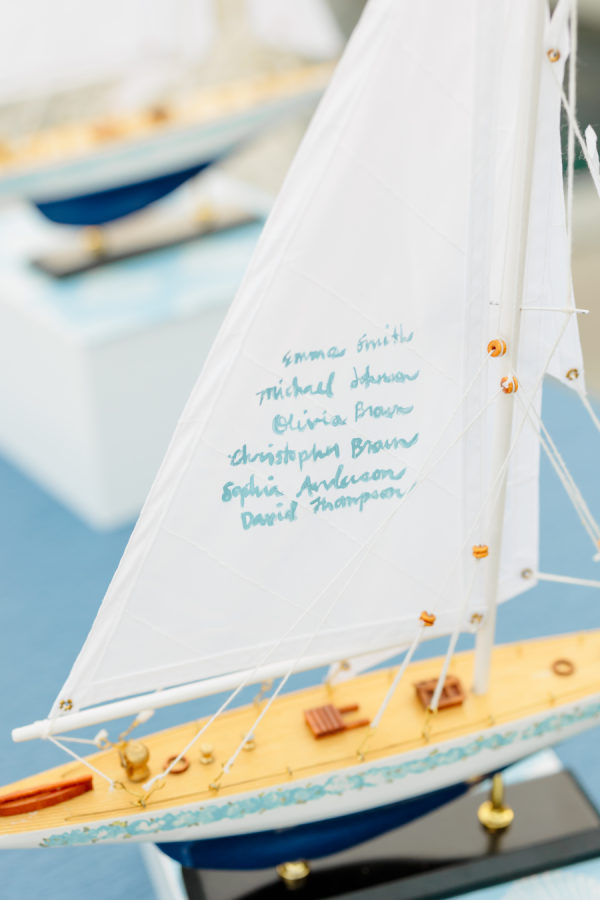 Emma Smith
Michael Johnson
Olivia Brown
Christopher Brown
Sophia Anderson
David Thompson